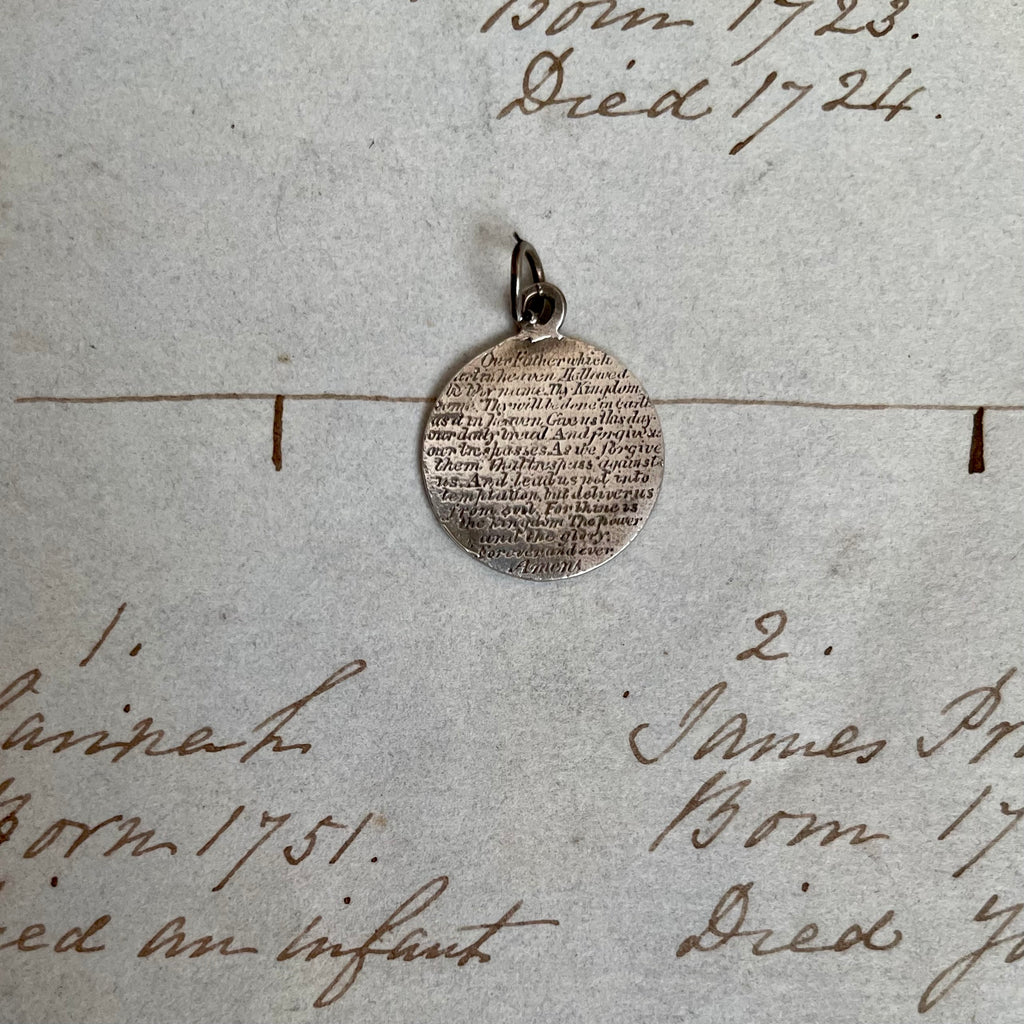 Born 1723.
Died 1724.
Our Father which
art in heaven, Hallowed
be thy name, Thy Kingdom
come. Thy will be done in earth
as it in heaven, Give us this day
our daily bread And forgive us
our trespasses, As we forgive
them that trespass against
us, And lead us not into
temptation, but deliver us
from evil, For thine is
the kingdom The power
and the glory;
For ever and ever
Amen
1. 2.
Hannah James
Born 1751. Born
Died an infant Died